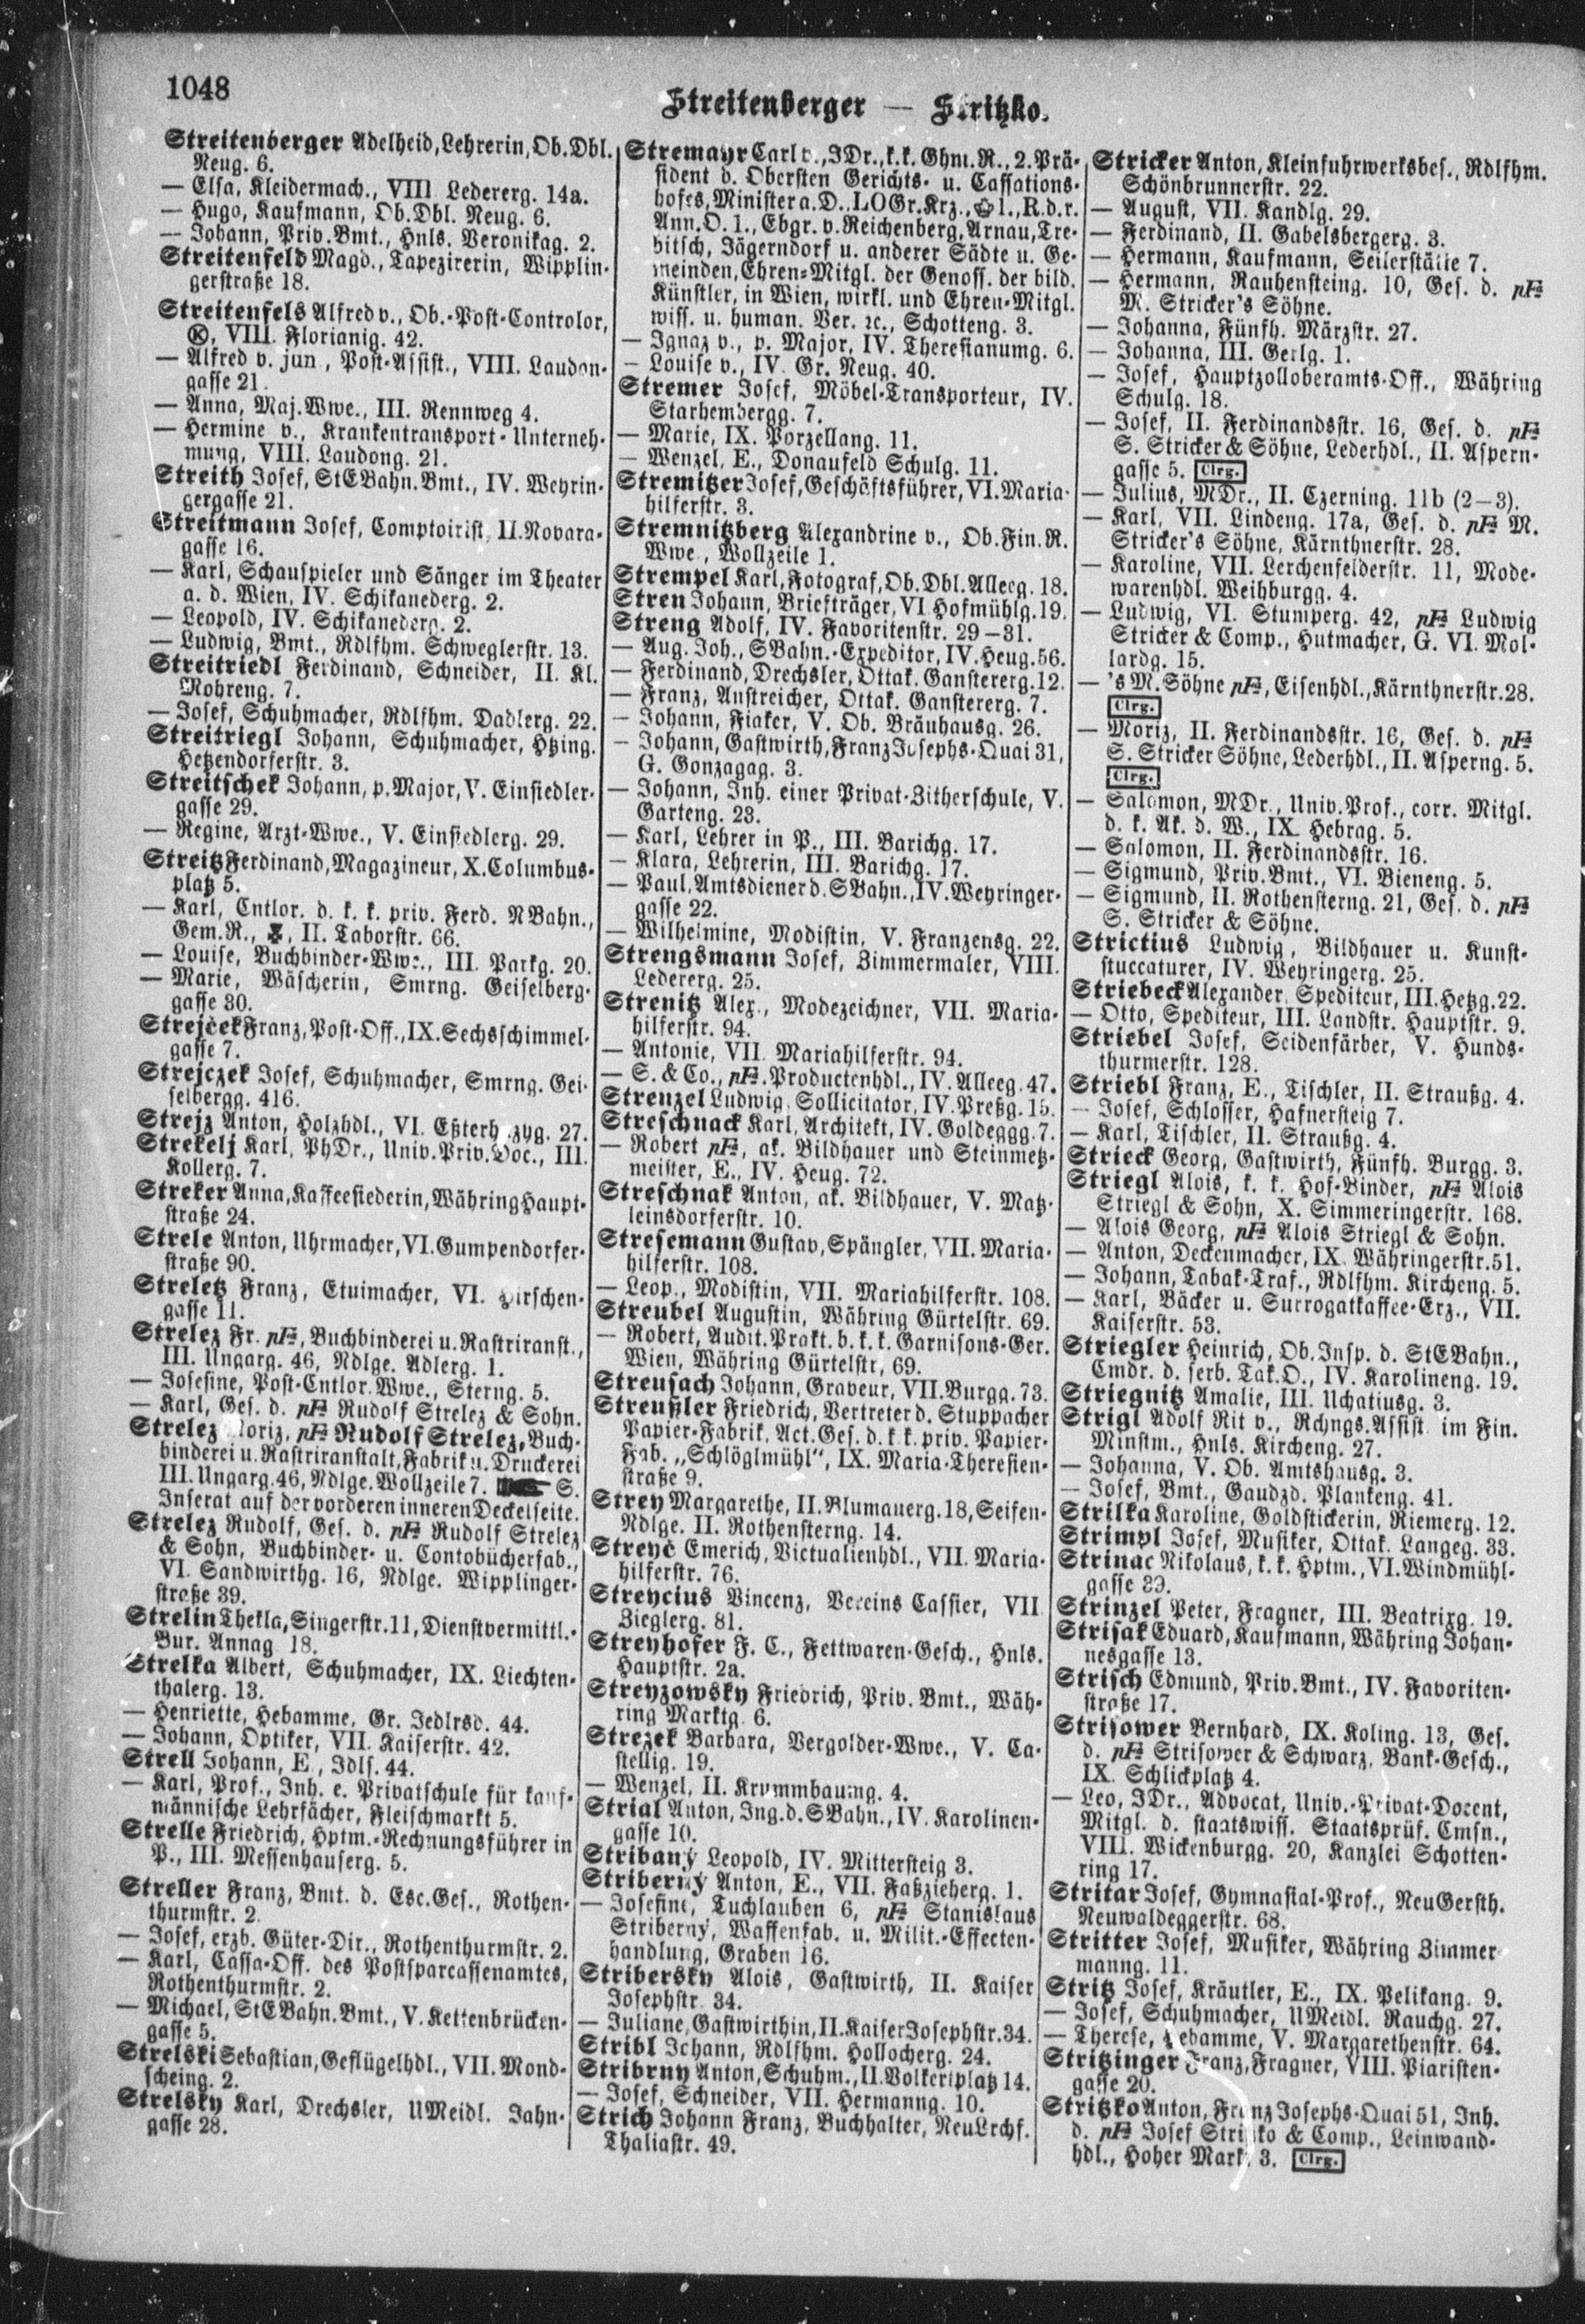 1048
Streitenberger — Stritzko.
Streitenberger Adelheid, Lehrerin, Ob.Dbl.
Neug. 6.
— Elsa, Kleidermach., VIII. Ledererg. 14a.
— Hugo, Kaufmann, Ob. Dbl. Neug. 6.
— Johann, Priv.Bmt., Hnls. Veronikag. 2.
Streitenfeld Magd., Tapezirerin, Wipplin-
gerstraße 18.
Streitenfels Alfred v., Ob.-Post-Controlor,
VIII. Florianig. 42.
— Alfred v. jun., Post-Assist., VIII. Laudon-
gasse 21.
— Anna, Maj.Wwe., III. Rennweg 4.
— Hermine v., Krankentransport-Unterneh-
mung, VIII. Laudong. 21.
Streith Josef, StEBahn.Bmt., IV. Weyrin-
gergasse 21.
Streitmann Josef, Comptoirist, II. Novara-
gasse 16.
— Karl, Schauspieler und Sänger im Theater
a. d. Wien, IV. Schikanederg. 2.
— Leopold, IV. Schikanederg. 2.
— Ludwig, Bmt., Rdlfhm. Schweglerstr. 13.
Streitriedl Ferdinand, Schneider, II. Kl.
Mohreng. 7.
— Josef, Schuhmacher, Rdlfhm. Dadlerg. 22.
Streitriegl Johann, Schuhmacher, Htzing.
Hetzendorferstr. 3.
Streitschek Johann, p. Major, V. Einsiedler-
gasse 29.
— Regine, Arzt-Wwe., V. Einsiedlerg. 29.
Streitz Ferdinand, Magazineur, X. Columbus-
platz 5.
— Karl, Cntlor. d. k. k. priv. Ferd. NBahn.,
Gem.R., II. Taborstr. 66.
— Louise, Buchbinder-Wwe., III. Parkg. 20.
— Marie, Wäscherin, Smrng. Geiselberg-
gasse 30.
Strejček Franz, Post-Off., IX. Sechsschimmel-
gasse 7.
Strejczek Josef, Schuhmacher, Smrng. Gei-
selbergg. 416.
Strejz Anton, Holzhdl., VI. Eßterhazyg. 27.
Strekelj Karl, PhDr., Univ.Priv.Doc., III.
Kollerg. 7.
Streker Anna, Kaffeesiederin, Währing Haupt-
straße 24.
Strele Anton, Uhrmacher, VI. Gumpendorfer-
straße 90.
Streletz Franz, Etuimacher, VI. Hirschen-
gasse 11.
Strelez Fr. pFa, Buchbinderei u. Rastriranst.,
III. Ungarg. 46, Ndlge. Adlerg. 1.
— Josefine, Post-Cntlor.Wwe., Sterng. 5.
— Karl, Ges. d. pFa Rudolf Strelez & Sohn.
Strelez Moriz, pFa Rudolf Strelez, Buch-
binderei u. Rastriranstalt, Fabrik u. Druckerei
III. Ungarg. 46, Ndlge. Wollzeile 7. S.
Inserat auf der vorderen inneren Deckelseite.
Strelez Rudolf, Ges. d. pFa Rudolf Strelez
& Sohn, Buchbinder- u. Contobücherfab.,
VI. Sandwirthg. 16, Ndlge. Wipplinger-
straße 39.
Strelin Thekla, Singerstr. 11, Dienstvermittl.-
Bur. Annag. 18.
Strelka Albert, Schuhmacher, IX. Liechten-
thalerg. 13.
— Henriette, Hebamme, Gr. Jedlrsd. 44.
— Johann, Optiker, VII. Kaiserstr. 42.
Strell Johann, E., Jdlf. 44.
— Karl, Prof., Inh. e. Privatschule für kauf-
männische Lehrfächer, Fleischmarkt 5.
Strelle Friedrich, Hptm.-Rechnungsführer in
P., III. Messenhauserg. 5.
Streller Franz, Bmt. d. Esc.Ges., Rothen-
thurmstr. 2.
— Josef, erzb. Güter-Dir., Rothenthurmstr. 2.
— Karl, Cassa-Off. des Postsparcassenamtes,
Rothenthurmstr. 2.
— Michael, StEBahn.Bmt., V. Kettenbrücken-
gasse 5.
Strelski Sebastian, Geflügelhdl., VII. Mond-
scheing. 2.
Strelsky Karl, Drechsler, UMeidl. Jahn-
gasse 28.
Stremayr Carl v., JDr., k. k. Ghm. R., 2. Prä-
sident d. Obersten Gerichts- u. Cassations-
hofes, Minister a. D., LOGr.Krz., 1., R. d. r.
Ann. O. 1., Ebgr. v. Reichenberg, Arnau, Tre-
bitsch, Jägerndorf u. anderer Städte u. Ge-
meinden, Ehren-Mitgl. der Genoss. der bild.
Künstler, in Wien, wirkl. und Ehren-Mitgl.
wiss. u. human. Ver. ꝛc., Schotteng. 3.
— Ignaz v., p. Major, IV. Theresianumg. 6.
— Louise v., IV. Gr. Neug. 40.
Stremer Josef, Möbel-Transporteur, IV.
Starhembergg. 7.
— Marie, IX. Porzellang. 11.
— Wenzel, E., Donaufeld Schulg. 11.
Stremitzer Josef, Geschäftsführer, VI. Maria-
hilferstr. 3.
Stremnitzberg Alexandrine v., Ob.Fin.R.
Wwe., Wollzeile 1.
Strempel Karl, Fotograf, Ob.Dbl. Alleeg. 18.
Stren Johann, Briefträger, VI. Hofmühlg. 19.
Streng Adolf, IV. Favoritenstr. 29—31.
— Aug. Joh., SBahn.-Expeditor, IV. Heug. 56.
— Ferdinand, Drechsler, Ottak. Gansterergg. 12.
— Franz, Anstreicher, Ottak. Gansterergg. 7.
— Johann, Fiaker, V. Ob. Bräuhausg. 26.
— Johann, Gastwirth, Franz Josephs-Quai 31,
G. Gonzagag. 3.
— Johann, Inh. einer Privat-Zitherschule, V.
Garteng. 23.
— Karl, Lehrer in P., III. Barichg. 17.
— Klara, Lehrerin, III. Barichg. 17.
— Paul, Amtsdiener d. SBahn., IV. Weyringer-
gasse 22.
— Wilhelmine, Modistin, V. Franzensg. 22.
Strengsmann Josef, Zimmermaler, VIII.
Ledererg. 25.
Strenitz Alex., Modezeichner, VII. Maria-
hilferstr. 94.
— Antonie, VII. Mariahilferstr. 94.
— S. & Co., pFa. Productenhdl., IV. Alleeg. 47.
Strenzel Ludwig, Sollicitator, IV. Preßg. 15.
Streschnack Karl, Architekt, IV. Goldeggg. 7.
— Robert pFa, ak. Bildhauer und Steinmetz-
meister, E., IV. Heug. 72.
Streschnak Anton, ak. Bildhauer, V. Matz-
leinsdorferstr. 10.
Stresemann Gustav, Spängler, VII. Maria-
hilferstr. 108.
— Leop., Modistin, VII. Mariahilferstr. 108.
Streubel Augustin, Währing Gürtelstr. 69.
— Robert, Audit.Prakt. b. k. k. Garnisons-Ger.
Wien, Währing Gürtelstr, 69.
Streusach Johann, Graveur, VII. Burgg. 73.
Streußler Friedrich, Vertreter d. Stuppacher
Papier-Fabrik, Act.Ges. d. k. k. priv. Papier-
Fab. „Schlöglmühl“, IX. Maria-Theresien-
straße 9.
Strey Margarethe, II. Blumauerg. 18, Seifen-
Ndlge. II. Rothensterng. 14.
Streyč Emerich, Victualienhdl., VII. Maria-
hilferstr. 76.
Streycius Vincenz, Vereins Cassier, VII
Zieglerg. 81.
Streyhofer F. C., Fettwaren-Gesch., Hnls.
Hauptstr. 2a.
Streyzowsky Friedrich, Priv. Bmt., Wäh-
ring Marktg. 6.
Strezek Barbara, Vergolder-Wwe., V. Ca-
stellig. 19.
— Wenzel, II. Krummbaumg. 4.
Strial Anton, Ing. d. SBahn., IV. Karolinen-
gasse 10.
Stribany Leopold, IV. Mittersteig 3.
Striberny Anton, E., VII. Faßzieherg. 1.
— Josefine, Tuchlauben 6, pFa Stanislaus
Striberny, Waffenfab. u. Milit.-Effecten-
handlung, Graben 16.
Stribersky Alois, Gastwirth, II. Kaiser
Josephstr. 34.
— Juliane, Gastwirthin, II. Kaiser Josephstr. 34.
Stribl Johann, Rdlfhm. Hollocherg. 24.
Stribrny Anton, Schuhm., II. Volkertplatz 14.
— Josef, Schneider, VII. Hermanng. 10.
Strich Johann Franz, Buchhalter, NeuLrchf.
Thaliastr. 49.
Stricker Anton, Kleinfuhrwerksbes., Rdlfhm.
Schönbrunnerstr. 22.
— August, VII. Kandlg. 29.
— Ferdinand, II. Gabelsbergerg. 3.
— Hermann, Kaufmann, Seilerstätte 7.
— Hermann, Rauhensteing. 10, Ges. d. pFa
M. Stricker's Söhne.
— Johanna, Fünfh. Märzstr. 27.
— Johanna, III. Gerlg. 1.
— Josef, Hauptzolloberamts-Off., Währing
Schulg. 18.
— Josef, II. Ferdinandsstr. 16, Ges. d. pFa
S. Stricker & Söhne, Lederhdl., II. Aspern-
gasse 5. Clrg.
— Julius, MDr., II. Czerning. 11b (2—3).
— Karl, VII. Lindeng. 17a, Ges. d. pFa M.
Stricker's Söhne, Kärnthnerstr. 28.
— Karoline, VII. Lerchenfelderstr. 11, Mode-
warenhdl. Weihburgg. 4.
— Ludwig, VI. Stumperg. 42, pFa Ludwig
Stricker & Comp., Hutmacher, G. VI. Mol-
lardg. 15.
— 's M. Söhne pFa, Eisenhdl., Kärnthnerstr. 28.
Clrg.
— Moriz, II. Ferdinandsstr. 16, Ges. d. pFa
S. Stricker Söhne, Lederhdl., II. Asperng. 5.
Clrg.
— Salomon, MDr., Univ.Prof., corr. Mitgl.
d. k. Ak. d. W., IX. Hebrag. 5.
— Salomon, II. Ferdinandsstr. 16.
— Sigmund, Priv.Bmt., VI. Bieneng. 5.
— Sigmund, II. Rothensterng. 21, Ges. d. pFa
S. Stricker & Söhne.
Strictius Ludwig, Bildhauer u. Kunst-
stuccaturer, IV. Weyringerg. 25.
Striebeck Alexander, Spediteur, III. Hetzg. 22.
— Otto, Spediteur, III. Landstr. Hauptstr. 9.
Striebel Josef, Seidenfärber, V. Hunds-
thurmerstr. 128.
Striebl Franz, E., Tischler, II. Straußg. 4.
— Josef, Schlosser, Hafnersteig 7.
— Karl, Tischler, II. Straußg. 4.
Strieck Georg, Gastwirth, Fünfh. Burgg. 3.
Striegl Alois, k. k. Hof-Binder, pFa Alois
Striegl & Sohn, X. Simmeringerstr. 168.
— Alois Georg, pFa Alois Striegl & Sohn.
— Anton, Deckenmacher, IX. Währingerstr. 51.
— Johann, Tabak-Traf., Rdlfhm. Kircheng. 5.
— Karl, Bäcker u. Surrogatkaffee-Erz., VII.
Kaiserstr. 53.
Striegler Heinrich, Ob.Insp. d. StEBahn.,
Cmdr. d. serb. Tak.O., IV. Karolineng. 19.
Striegnitz Amalie, III. Uchatiusg. 3.
Strigl Adolf Rit v., Rchngs.Assist. im Fin.
Minstm., Hnls. Kircheng. 27.
— Johanna, V. Ob. Amtshausg. 3.
— Josef, Bmt., Gaudzd. Plankeng. 41.
Strilka Karoline, Goldstickerin, Riemerg. 12.
Strimpl Josef, Musiker, Ottak. Langeg. 33.
Strinac Nikolaus, k. k. Hptm., VI. Windmühl-
gasse 39.
Strinzel Peter, Fragner, III. Beatrixg. 19.
Strisak Eduard, Kaufmann, Währing Johan-
nesgasse 13.
Strisch Edmund, Priv.Bmt., IV. Favoriten-
straße 17.
Strisower Bernhard, IX. Koling. 13, Ges.
d. pFa Strisower & Schwarz, Bank-Gesch.,
IX. Schlickplatz 4.
— Leo, JDr., Advocat, Univ.-Privat-Docent,
Mitgl. d. staatswiss. Staatsprüf. Cmsn.,
VIII. Wickenburgg. 20, Kanzlei Schotten-
ring 17.
Stritar Josef, Gymnasial-Prof., NeuGersth.
Neuwaldeggerstr. 68.
Stritter Josef, Musiker, Währing Zimmer
manng. 11.
Stritz Josef, Kräutler, E., IX. Pelikang. 9.
— Josef, Schuhmacher, UMeidl. Rauchg. 27.
— Therese, Hebamme, V. Margarethenstr. 64.
Stritzinger Franz, Fragner, VIII. Piaristen-
gasse 20.
Stritzko Anton, Franz Josephs-Quai 51, Inh.
d. pFa Josef Stritzko & Comp., Leinwand-
hdl., Hoher Markt 3. Clrg.